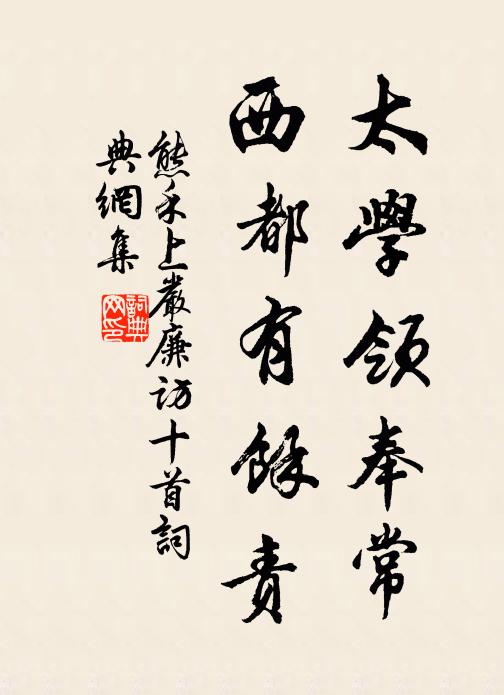 太學領奉常
西都有餘責
熊禾上嚴廉訪十首詞
典網集
詞典網印